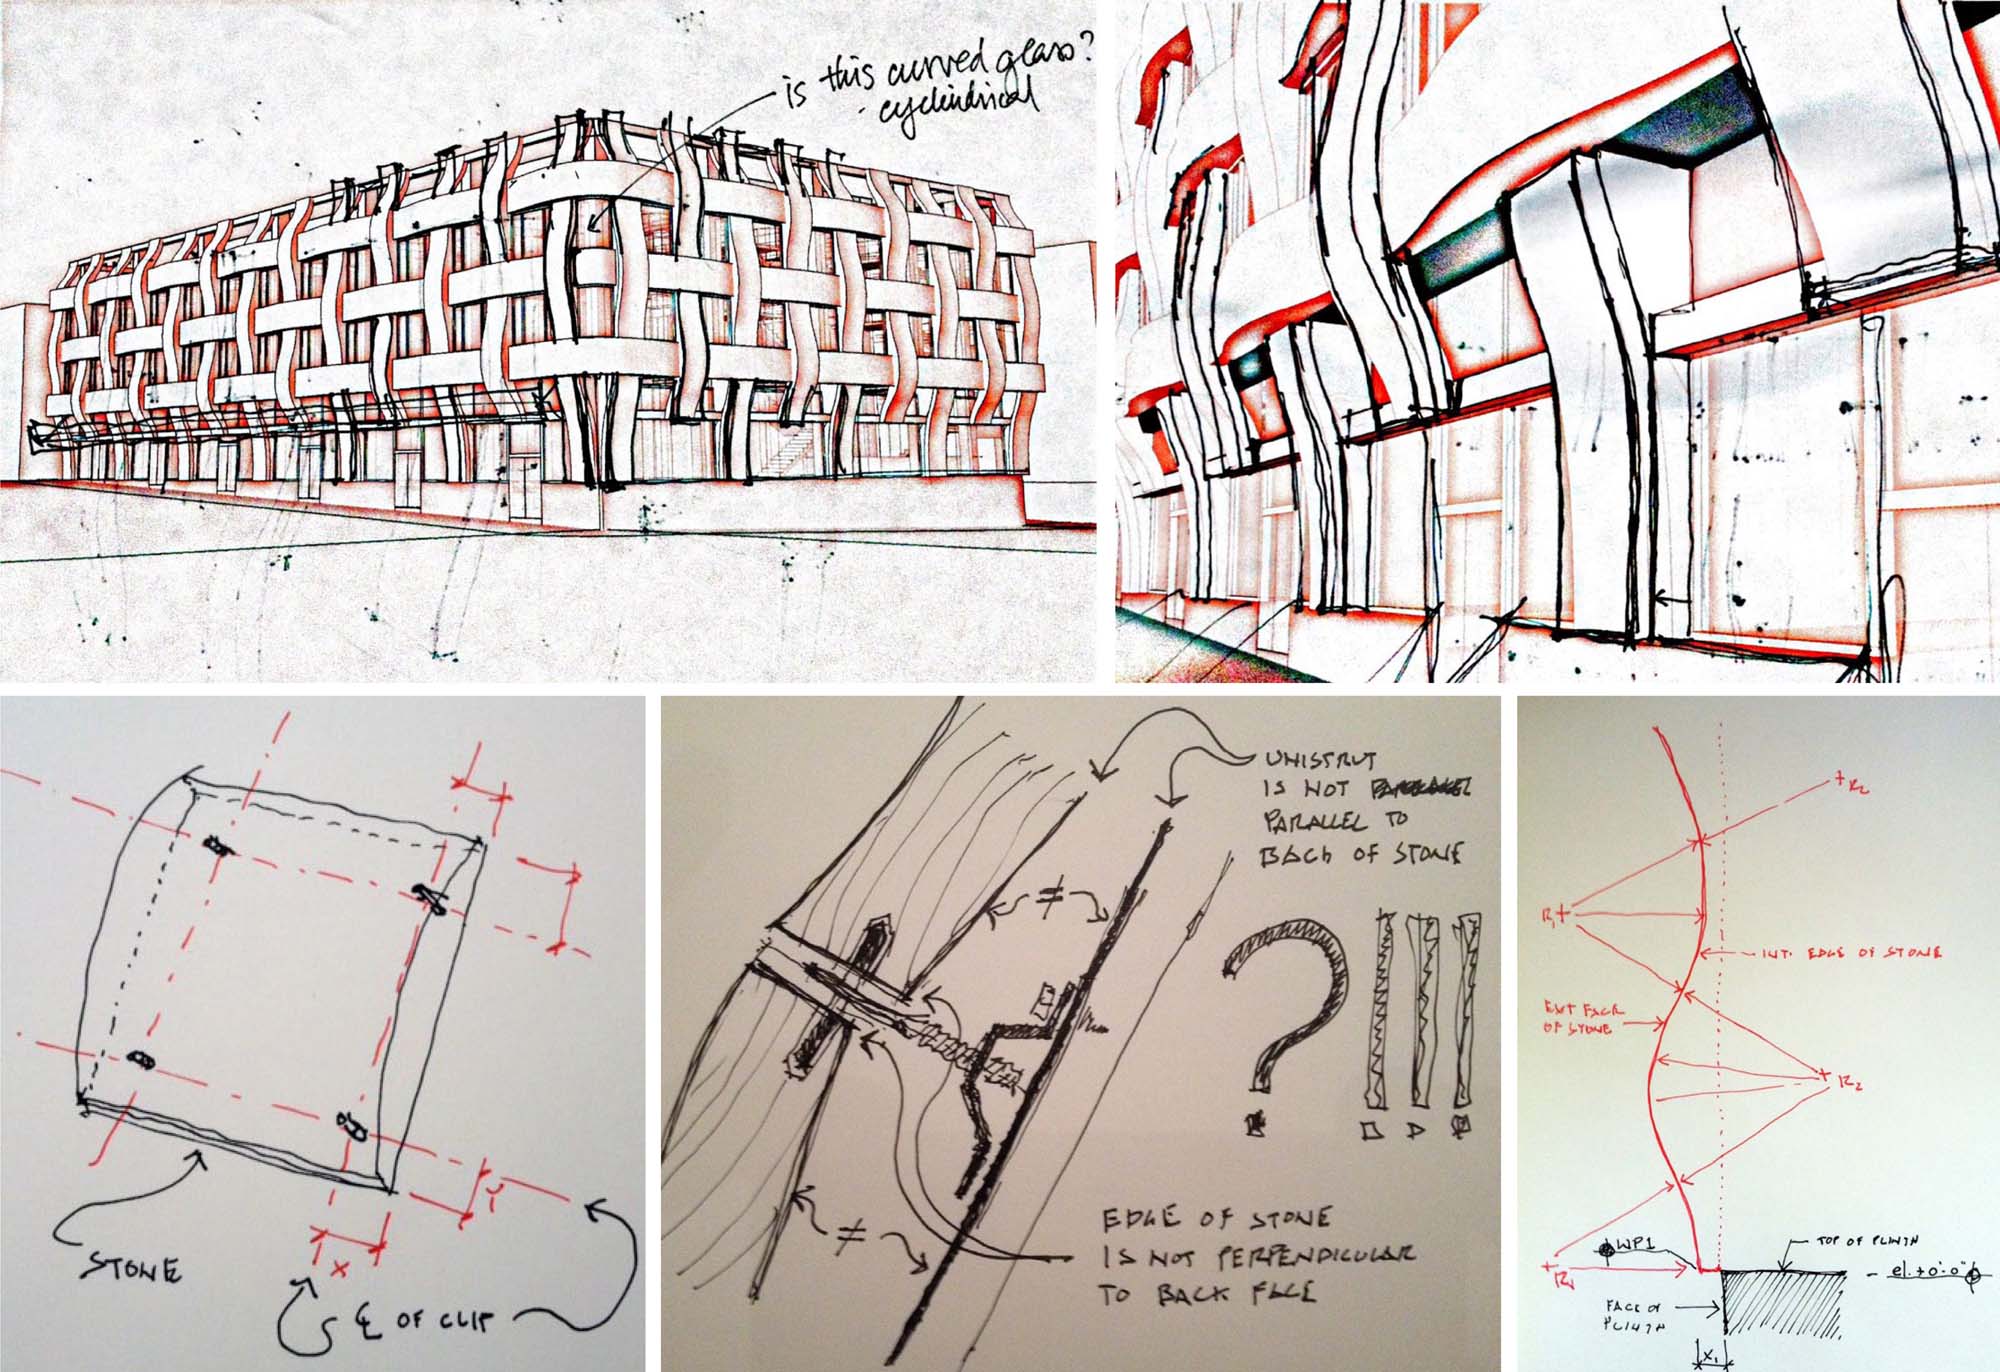 is this curved glass?
- cylindrical
STONE
X
Y
℄ OF CLIP
UNISTRUT
IS NOT
PARALLEL TO
BACK OF STONE
≠
?!!!
≠
EDGE OF STONE
IS NOT PERPENDICULAR
TO BACK FACE
+R2
R1+
INT. EDGE OF STONE
EXT FACE
OF STONE
+R2
WP1
+R1
TOP OF PLINTH
el. +0'-0"
FACE OF
PLINTH
X1